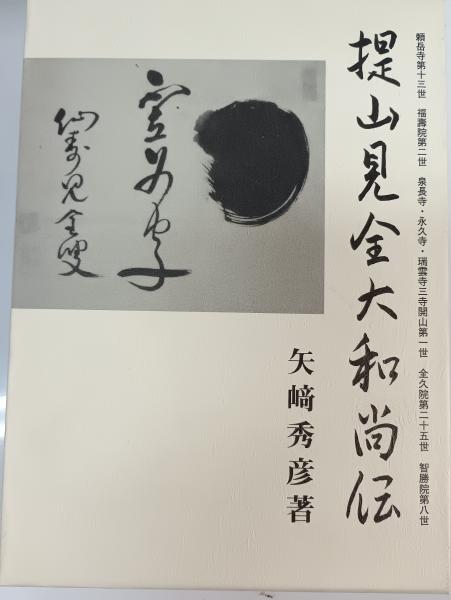 頼岳寺第十三世　福壽院第二世　泉長寺・永久寺・瑞雲寺三寺開山第一世　全久院第二十五世　智勝院第八世
提山見全大和尚伝
矢﨑秀彦著
仙壽見全叟